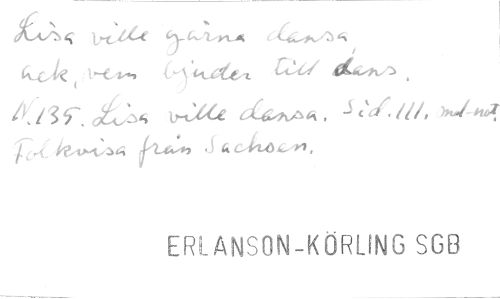 Lisa ville gärna dansa,
ack, vem bjuder till dans.
N.135. Lisa ville dansa. Sid. 111. md-not.
Folkvisa från Sachsen.
ERLANSON-KÖRLING SGB